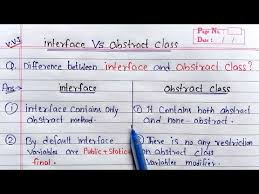 Page No.
Date
V.V.I
interface Vs Abstract class
Q. Difference between interface and Abstract class?
Ans→
interface
Abstract class
① interface contains only
abstract method.
① It contains both abstract
and none-abstract.
② By default interface
variables are Public+Static
final.
② There is no any restriction
on abstract class
variables modifier.